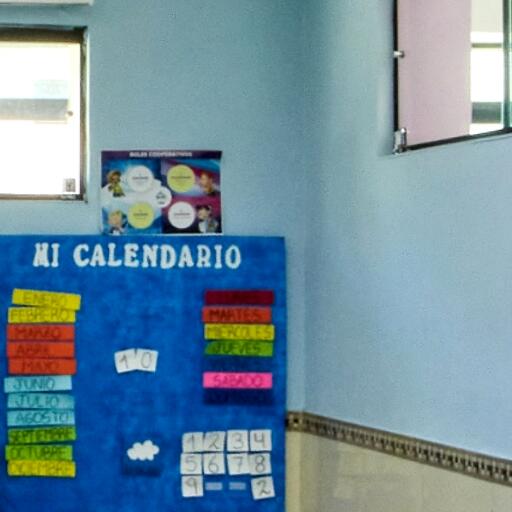 ROLES COOPERATIVOS
MI CALENDARIO
ENERO
FEBRERO
MARZO
ABRIL
MAYO
JUNIO
JULIO
AGOSTO
SEPTIEMBRE
OCTUBRE
DICIEMBRE
1 0
LUNES
MARTES
MIERCOLES
JUEVES
SABADO
DOMINGO
1 2 3 4
5 6 7 8
9 2